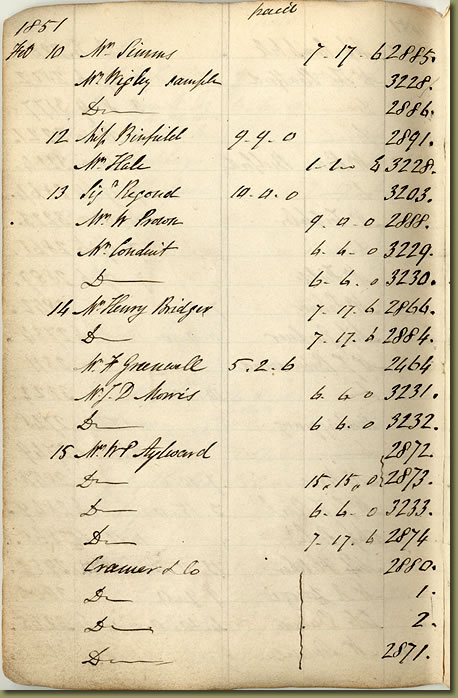 paid
1851
Feb 10 Mr Simms 7.17.6 2885.
Mr Wigley sample 3228.
Do 2886.
12 Miss Binfield 9.9.0 2891.
Mr Hale 3228.
13 Sigr Regondi 3203.
Mr W Brown 9.0.0 2888.
Mr Conduit 6.6.0 3229.
Do 6.6.0 3230.
14 Mr Henry Bridger 7.17.6 2866.
Do 7.17.6 2884.
Mr F Greenwell 5.2.6 2464
Mr J. D Morris 6.6.0 3231.
Do 6.6.0 3232.
15 Mr W P Aylward 2872.
Do 15.15.0 2873.
Do 6.6.0 3233.
Do 7.17.6 2874
Cramer & Co 2880.
Do 1.
Do 2.
Do 2871.